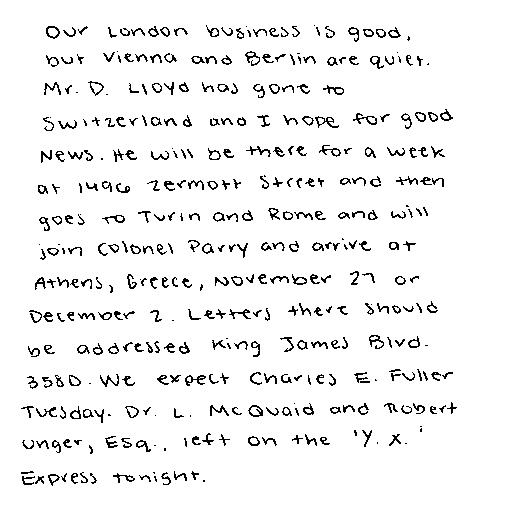 Our London business is good,
but Vienna and Berlin are quiet.
Mr. D. Lloyd has gone to
Switzerland and I hope for good
News. He will be there for a week
at 1496 Zermott Street and then
goes to Turin and Rome and will
join Colonel Parry and arrive at
Athens, Greece, November 27 or
December 2. Letters there should
be addressed King James Blvd.
3580. We expect Charles E. Fuller
Tuesday. Dr. L. McQuaid and Robert
Unger, Esq., left on the 'Y. X.'
Express tonight.